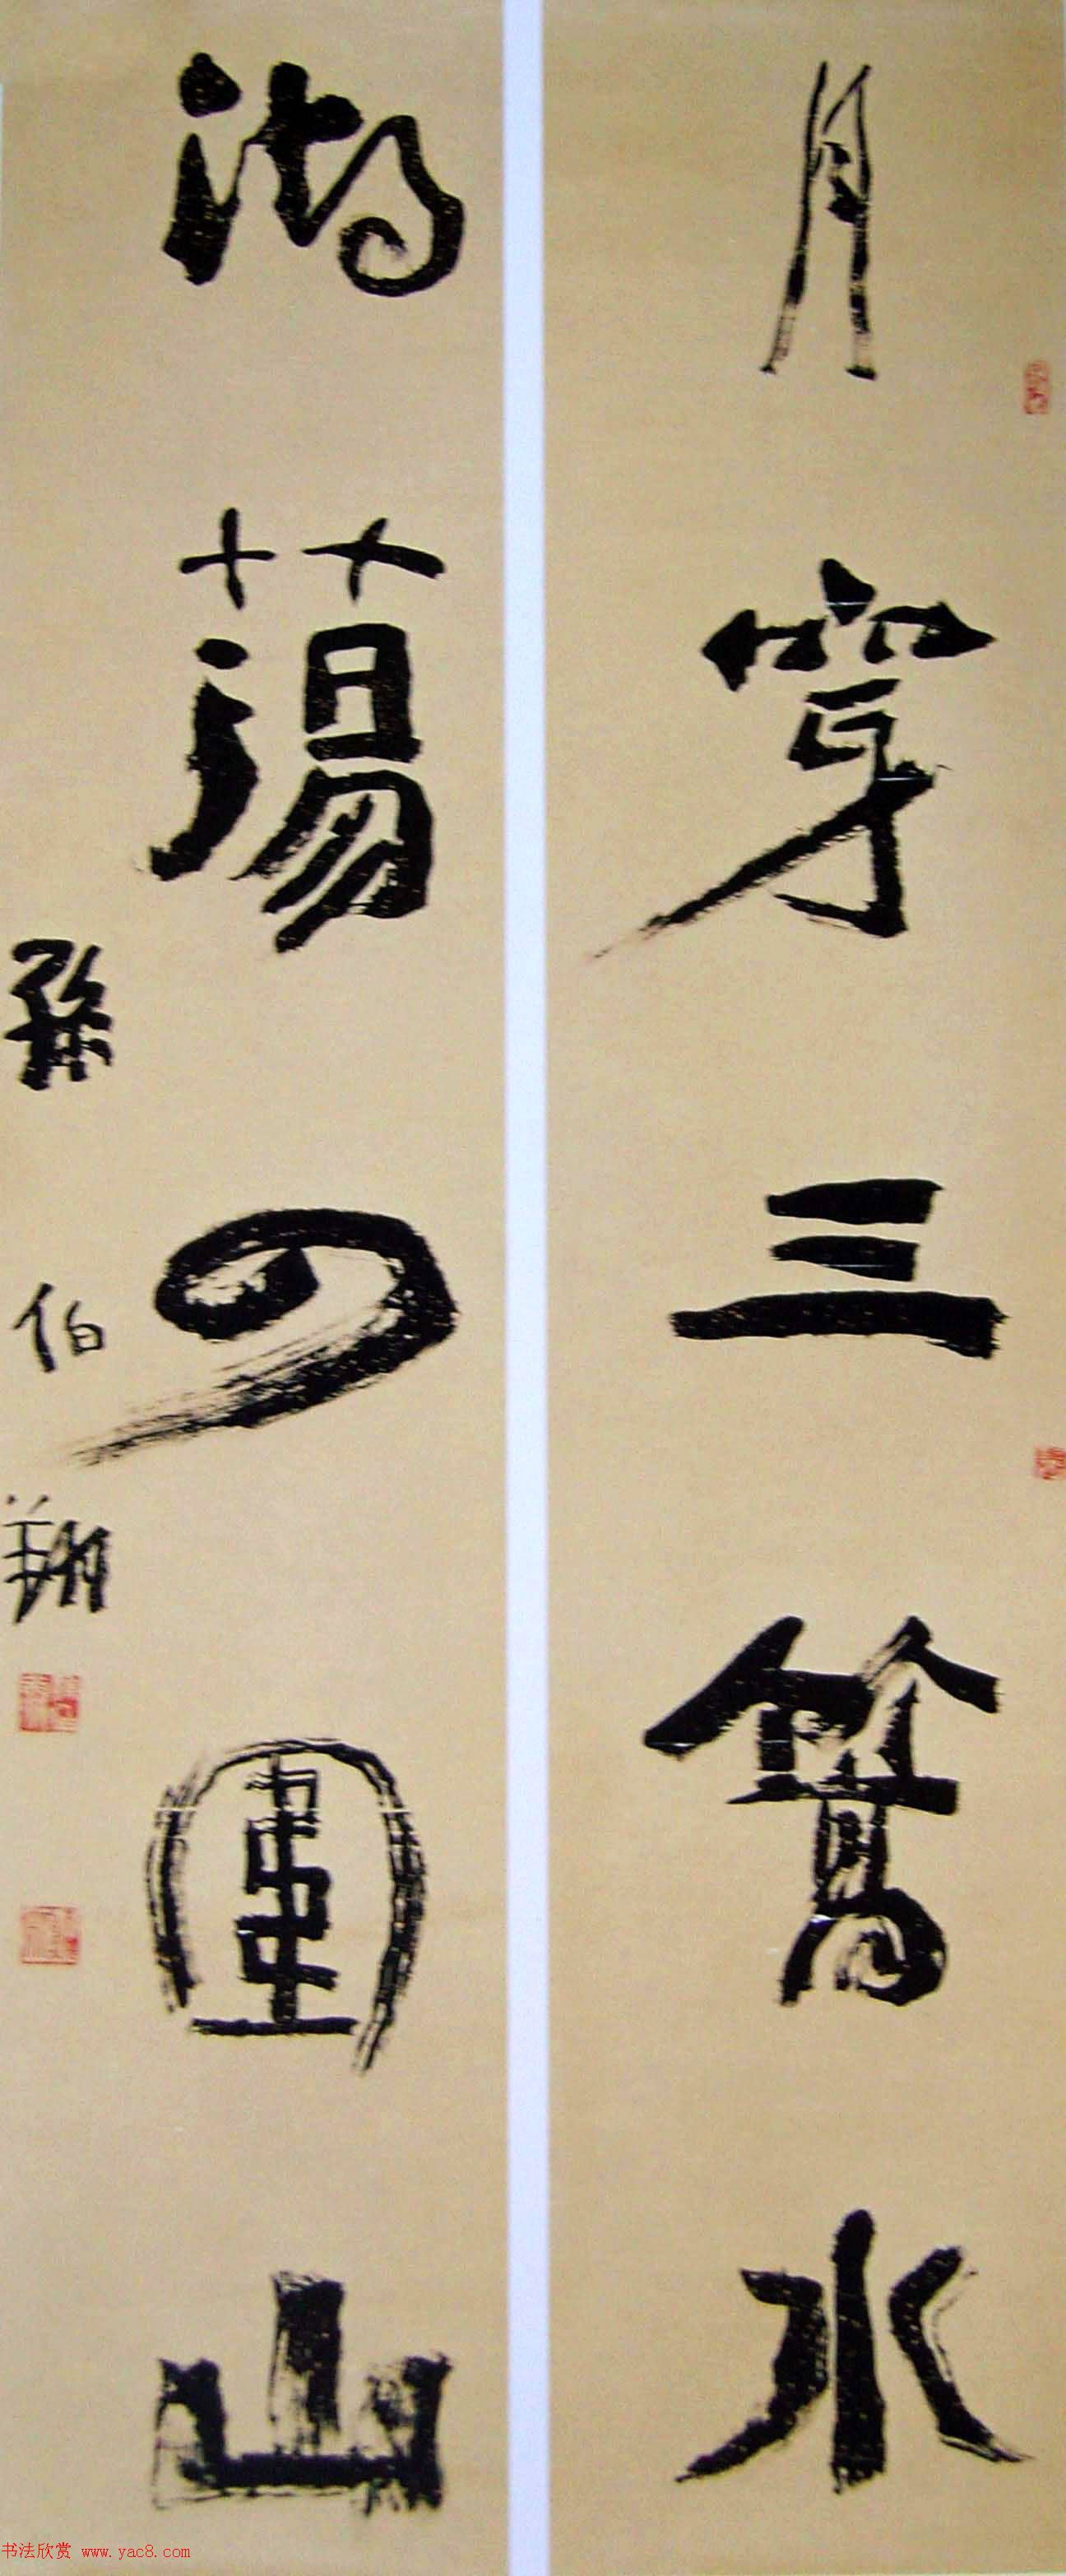 月穿三篙水
湖蕩四圍山
孫伯翔
书法欣赏 www.yac8.com